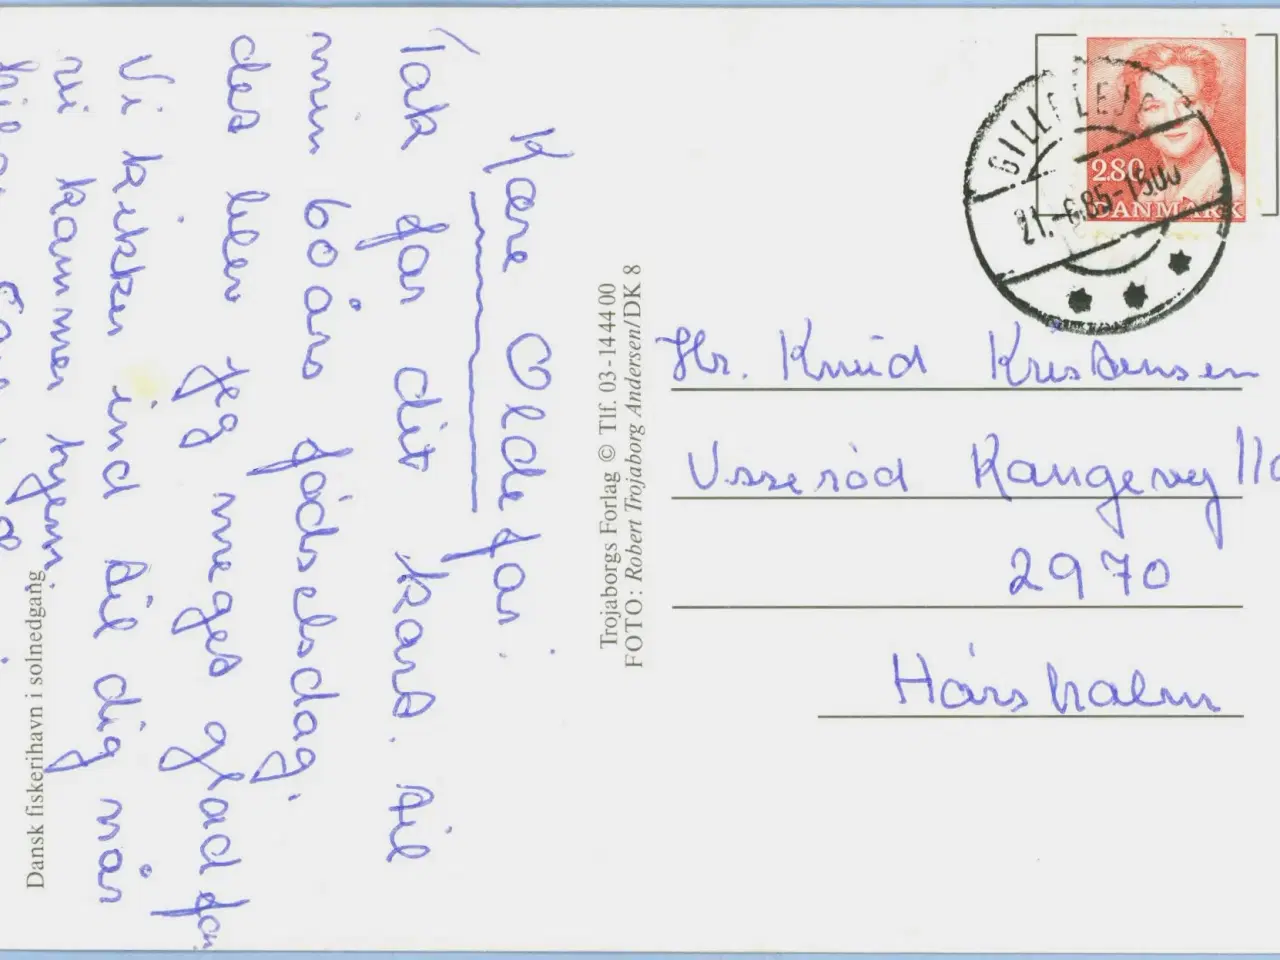 Kære Oldefar.
Tak for dit kort. til
min 60 års fødselsdag.
det blev jeg meget glad for
Vi kikker ind til dig når
vi kommer hjem.
Dansk fiskerihavn i solnedgang
Trojaborgs Forlag © Tlf. 03-144400
FOTO: Robert Trojaborg Andersen/DK 8
GILLELEJE
21.-6.85-15
2.80
DANMARK
Hr. Knud Kristensen
Usserød Kongevej 110
2970
Hørsholm